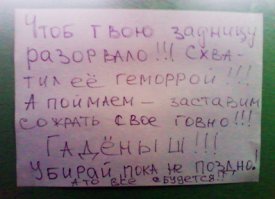 Чтоб твою задницу
разорвало!!! Схва-
тил её геморрой!!!
А поймаем — заставим
сожрать свое говно!!!
Гадёныш!!!
Убирай, пока не поздно!
А то всё сбудется!!